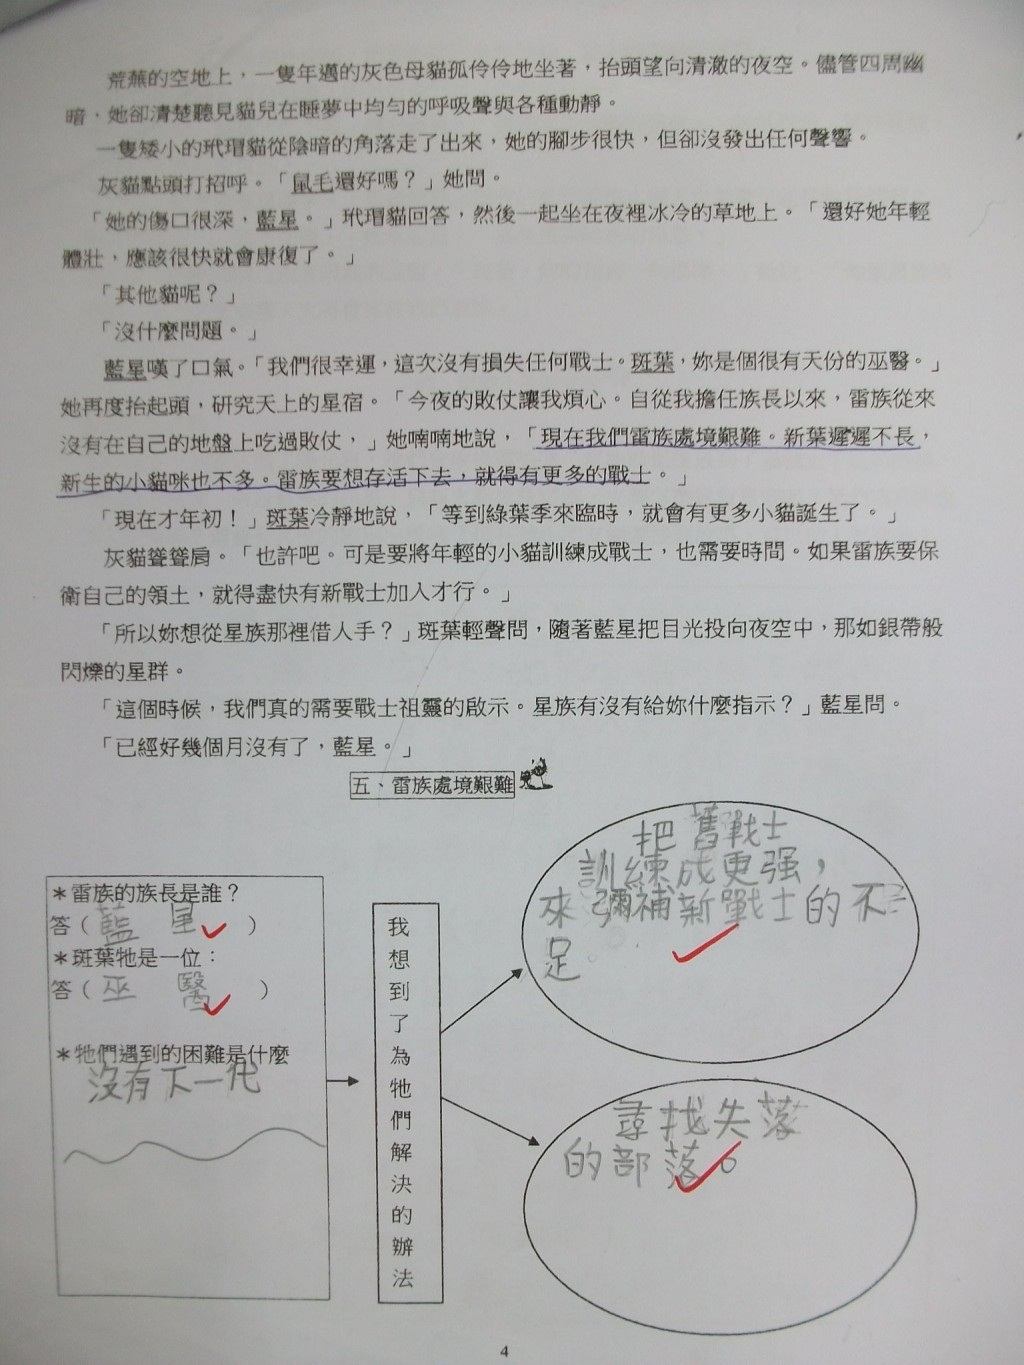 荒蕪的空地上，一隻年邁的灰色母貓孤伶伶地坐著，抬頭望向清澈的夜空。儘管四周幽
暗，她卻清楚聽見貓兒在睡夢中均勻的呼吸聲與各種動靜。
一隻矮小的玳瑁貓從陰暗的角落走了出來，她的腳步很快，但卻沒發出任何聲響。
灰貓點頭打招呼。「鼠毛還好嗎？」她問。
「她的傷口很深，藍星。」玳瑁貓回答，然後一起坐在夜裡冰冷的草地上。「還好她年輕
體壯，應該很快就會康復了。」
「其他貓呢？」
「沒什麼問題。」
藍星嘆了口氣。「我們很幸運，這次沒有損失任何戰士。斑葉，妳是個很有天份的巫醫。」
她再度抬起頭，研究天上的星宿。「今夜的敗仗讓我煩心。自從我擔任族長以來，雷族從來
沒有在自己的地盤上吃過敗仗，」她喃喃地說，「現在我們雷族處境艱難。新葉遲遲不長，
新生的小貓咪也不多。雷族要想存活下去，就得有更多的戰士。」
「現在才年初！」斑葉冷靜地說，「等到綠葉季來臨時，就會有更多小貓誕生了。」
灰貓聳聳肩。「也許吧。可是要將年輕的小貓訓練成戰士，也需要時間。如果雷族要保
衛自己的領土，就得盡快有新戰士加入才行。」
「所以妳想從星族那裡借人手？」斑葉輕聲問，隨著藍星把目光投向夜空中，那如銀帶般
閃爍的星群。
「這個時候，我們真的需要戰士祖靈的啟示。星族有沒有給妳什麼指示？」藍星問。
「已經好幾個月沒有了，藍星。」
五、雷族處境艱難
＊雷族的族長是誰？
答（藍 星）
＊斑葉牠是一位：
答（巫 醫）
＊牠們遇到的困難是什麼
沒有下一代
我想到了為牠們解決的辦法
把舊戰士
訓練成更强，
來彌補新戰士的不
足。
尋找失落
的部落。
4